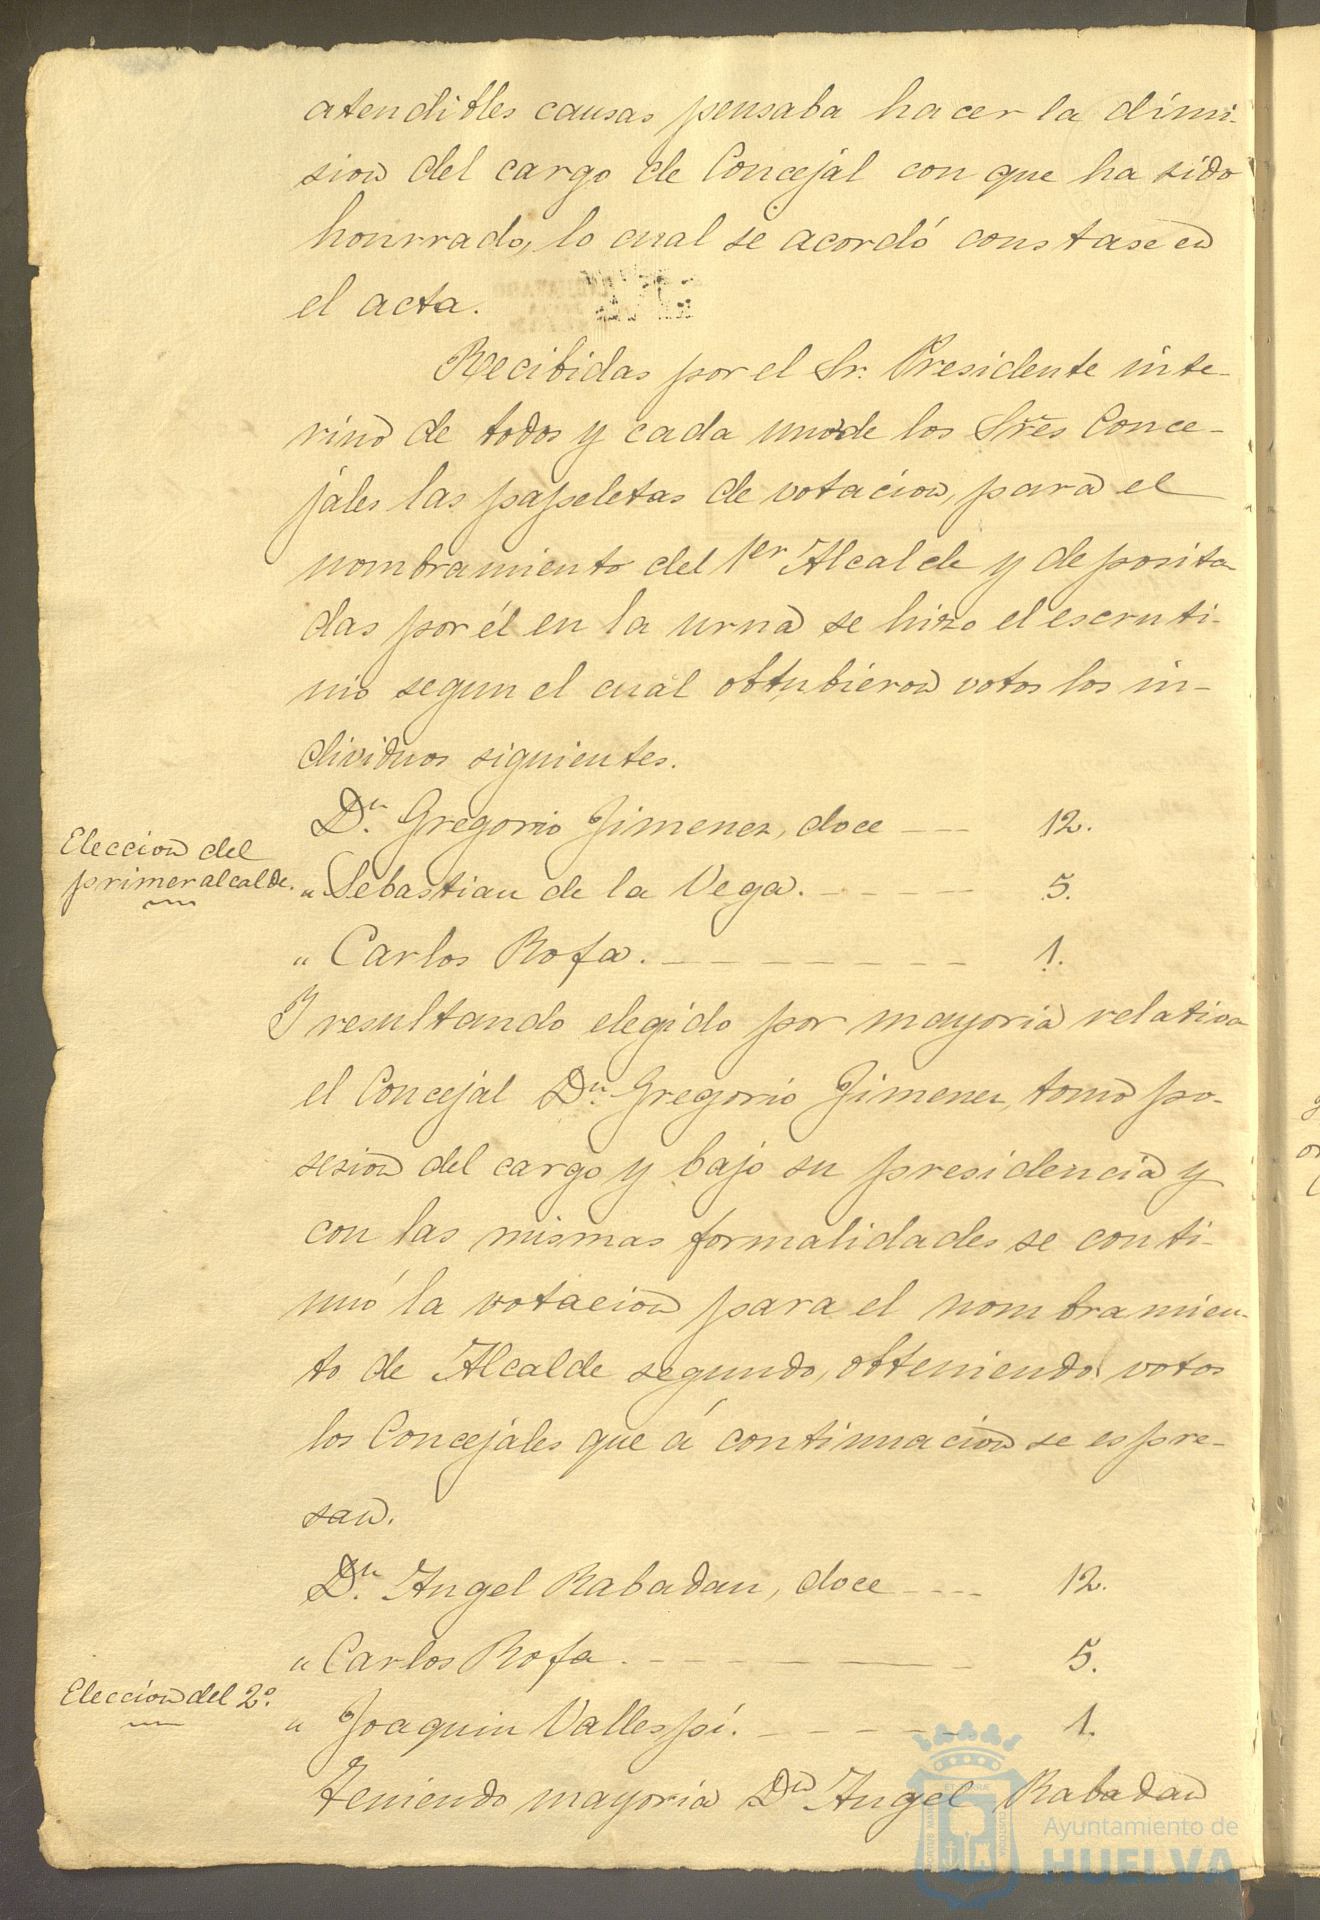 atendibles causas pensaba hacer la dimi-
sion del cargo de Concejal con que ha sido
honrrado, lo cual se acordó constase en
el acta.
Recibidas por el Sr. Presidente inte-
rino de todos y cada uno de los Sres Conce-
jales las papeletas de votacion, para el
nombramiento del 1er Alcalde y deposita-
das por él en la urna se hizo el escruti-
nio segun el cual obtubieron votos los in-
dividuos siguientes.
Dn. Gregorio Jimenez, doce ---- 12.
Eleccion del
primer alcalde.
" Sebastian de la Vega. ----- 5.
" Carlos Rofa. -------- 1.
Y resultando elegido por mayoria relativa
el Concejal Dn. Gregorio Jimenez, tomó po-
sesion del cargo y bajo su presidencia y
con las mismas formalidades se conti-
nuó la votacion para el nombramien-
to de Alcalde segundo, obteniendo votos
los Concejales que á continuacion se espre-
san.
Dn. Angel Rabadan, doce ---- 12.
" Carlos Rofa. -------- 5.
Eleccion del 2º.
" Joaquin Vallespí. ------ 1.
Teniendo mayoria Dn Angel Rabadan
Ayuntamiento de
HUELVA